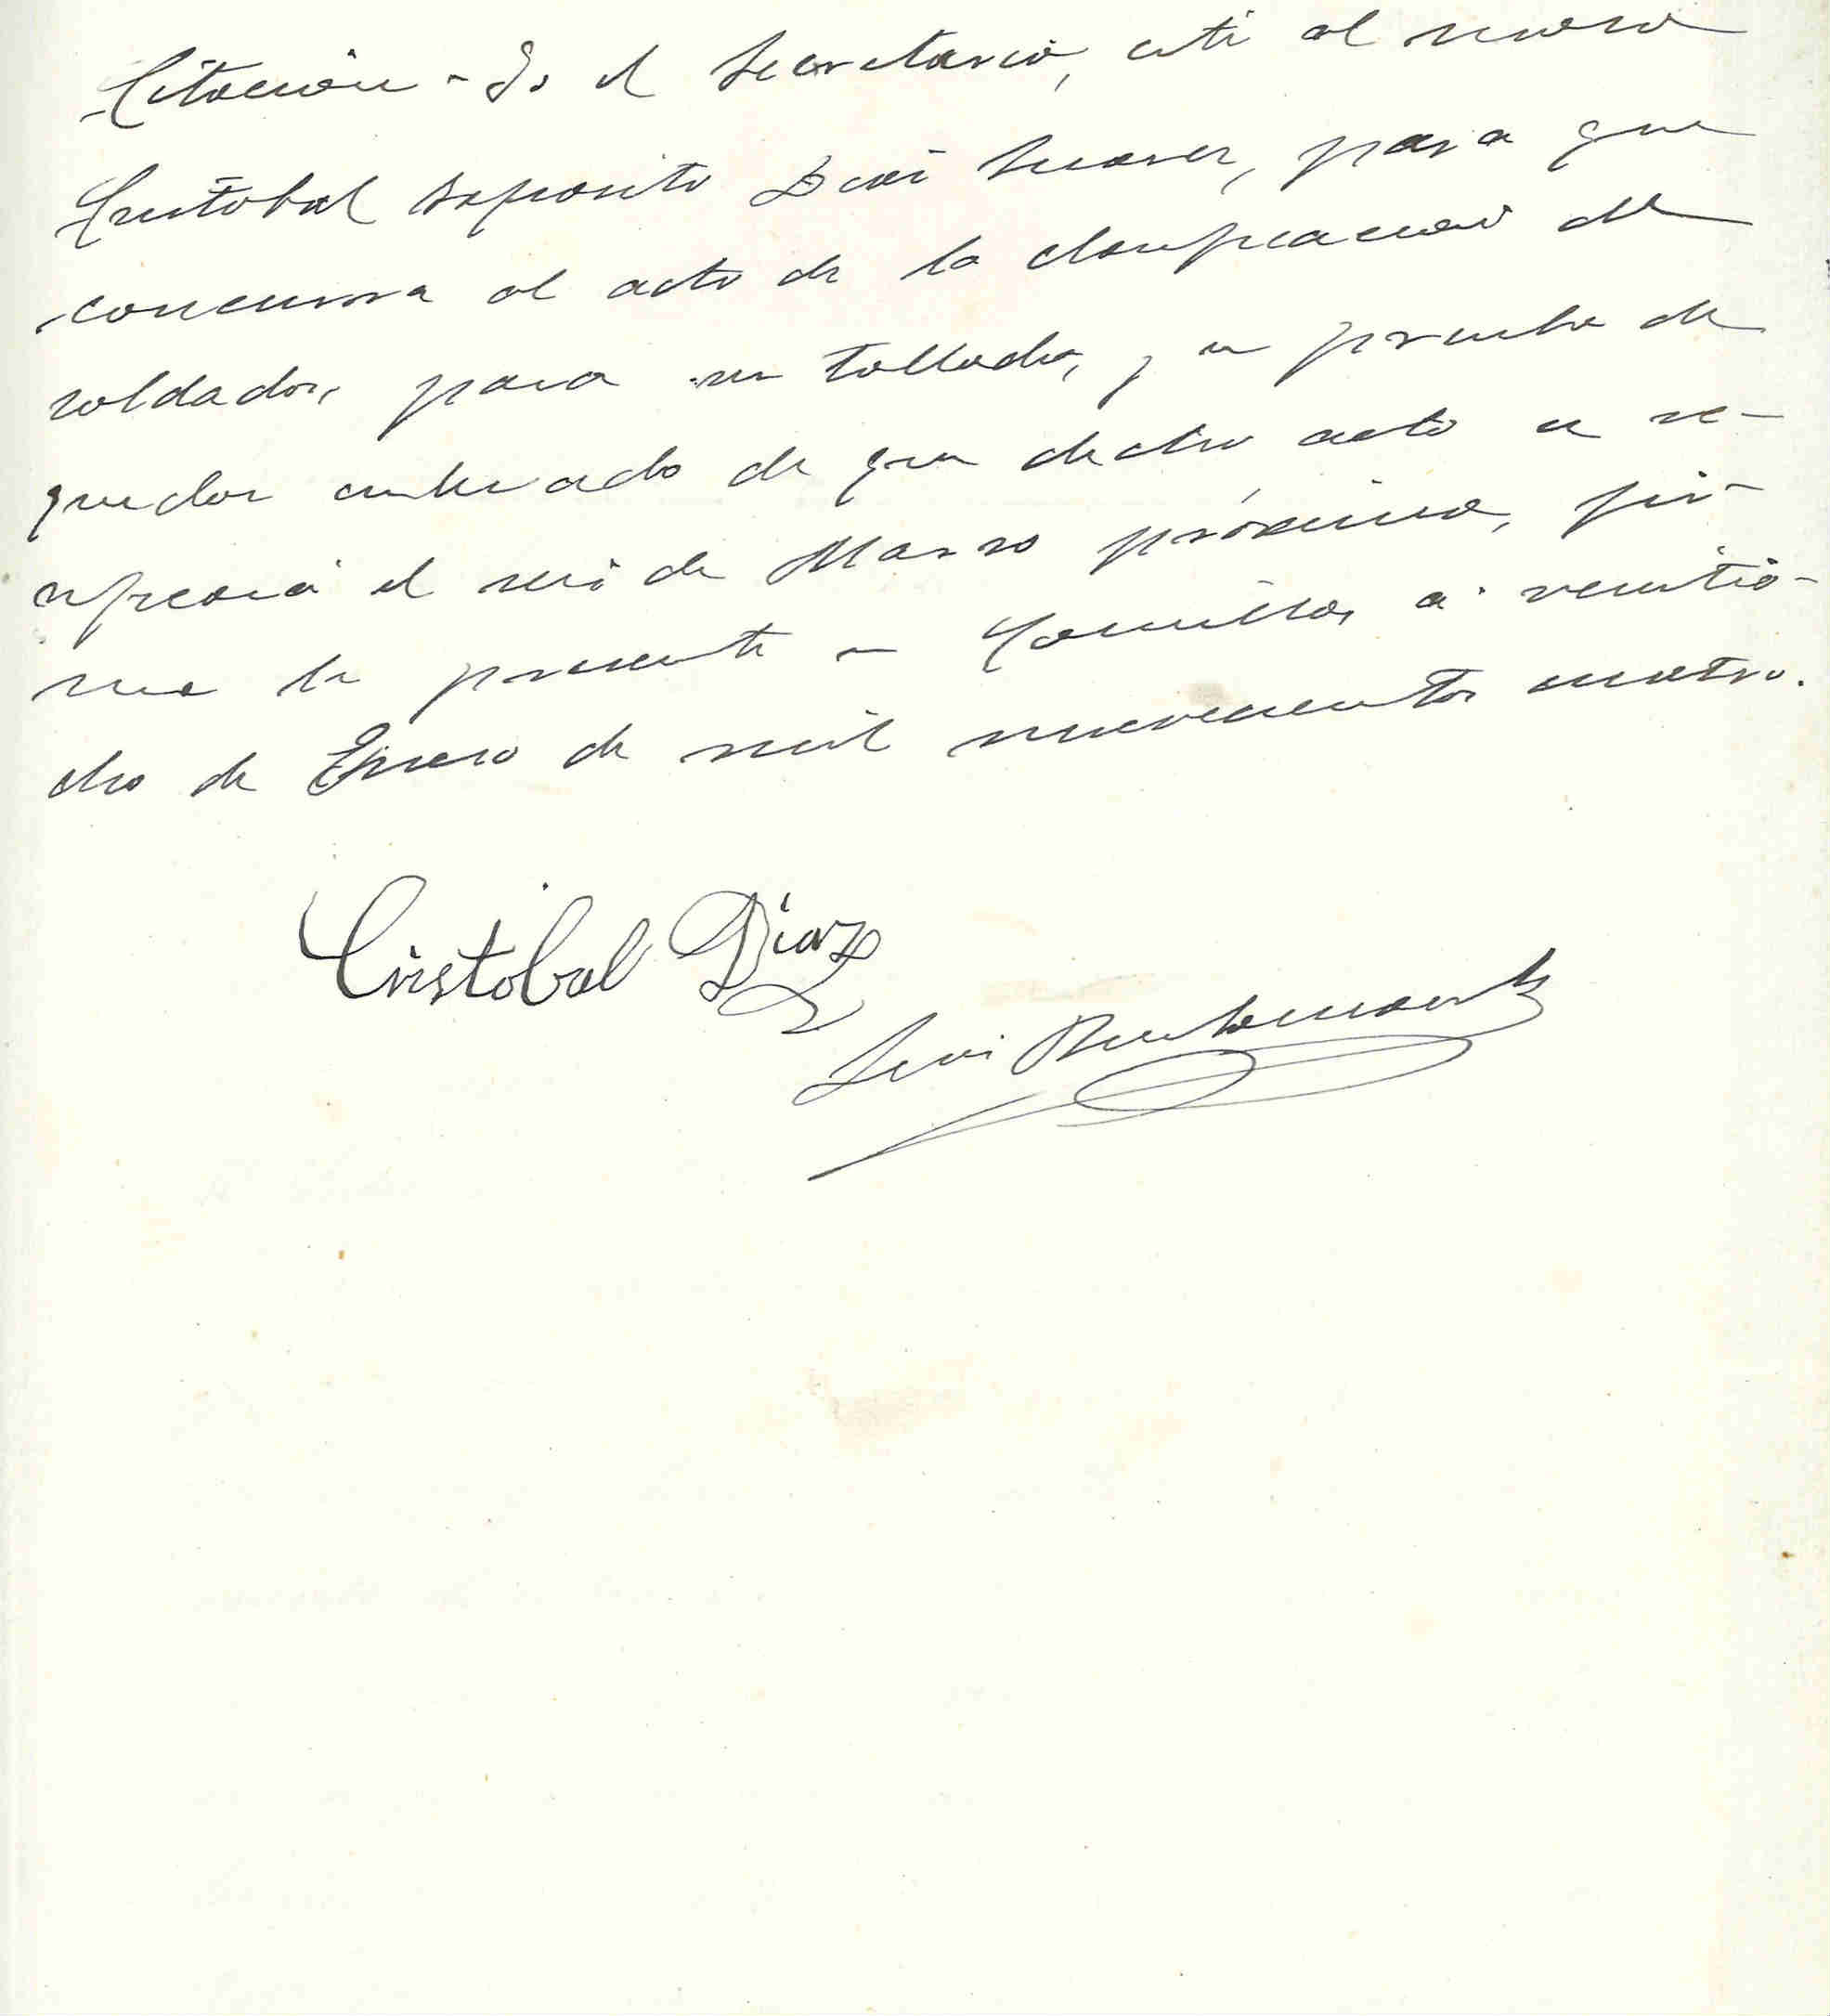 Citación - Yo el Secretario, cité al mozo
Cristobal Exposito Diaz Suarez, para que
concurra al acto de la clasificacion de
soldados, para ser tallado, y en prueba de
quedar enterado de que dicho acto se ve-
rificará el seis de Marzo próximo, fir-
ma la presente en Comillas a veintio-
cho de Enero de mil novecientos cuatro.
Cristobal Diaz
Luis